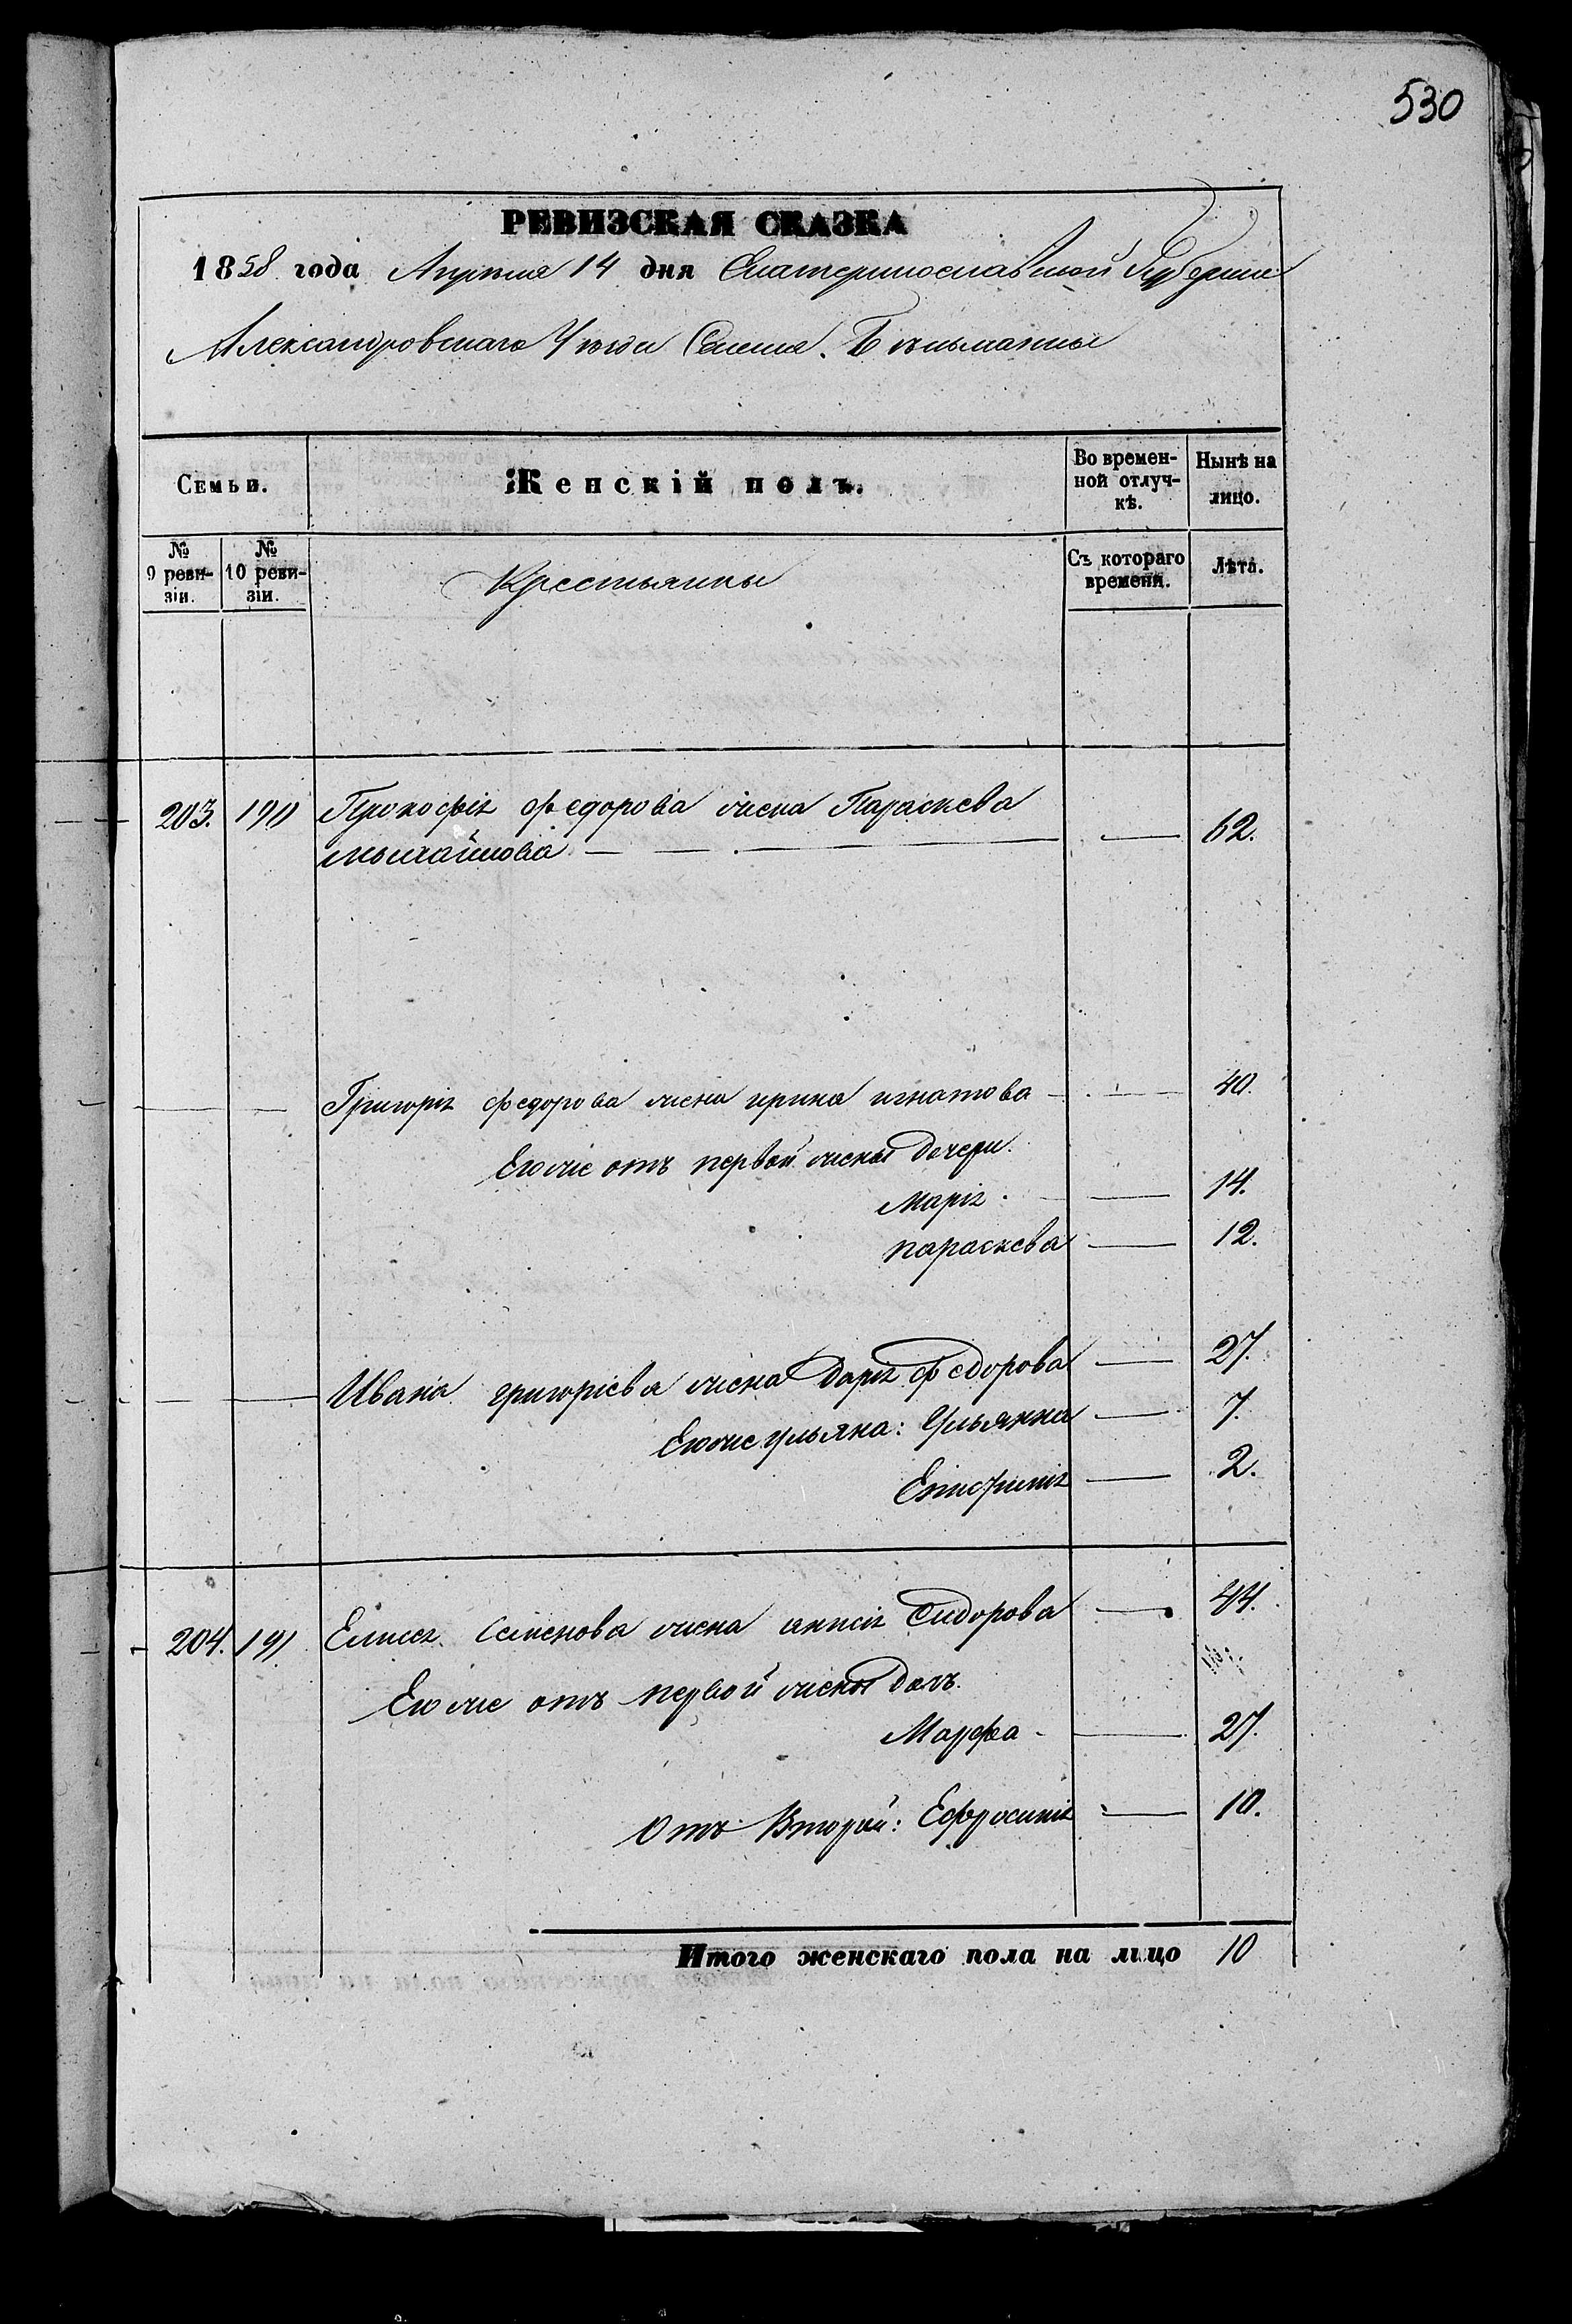 530
РЕВИЗСКАЯ СКАЗКА
1858 года Апреля 14 дня Екатеринославской Губернии
Александровскаго Уезда Селения
Семьи.
Женскій полъ.
Во времен-
ной отлуч-
кѣ.
Нынѣ на
лицо.
№
9 реви-
зіи.
№
10 реви-
зіи.
Крестьянны
Съ котораго
времени.
Лѣта.
203. 190 Прокофія Федорова жена Параскева
михайлова — — 62.
Григорія федорова жена ирина игнатова — 40.
Его же отъ первой жены дочери.
Марія — 14.
параскева — 12.
Ивана григоріева жена Дарія федорова — 27.
Его же ульяна: Ульянна — 7.
— 2.
204. 191 Елисея Семенова жена анисія Сидорова — 44.
Его же отъ первой жены дочъ.
Марфа — 27.
Отъ Второй: Ефросинія — 10.
Итого женскаго пола на лицо 10